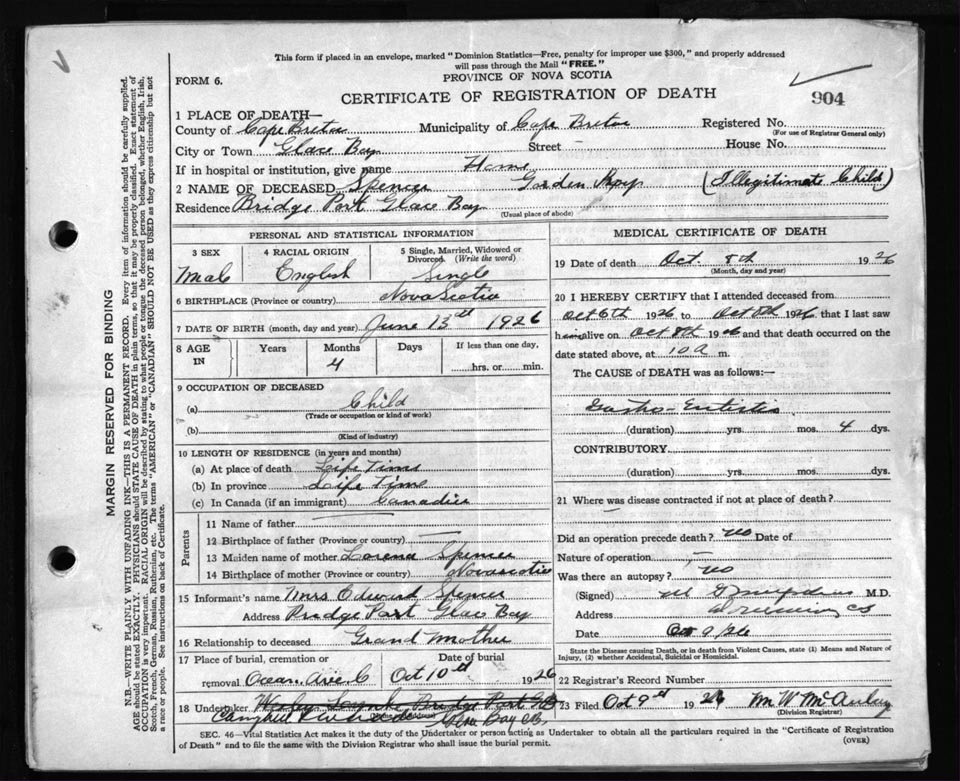 This form if placed in an envelope, marked "Dominion Statistics—Free, penalty for improper use $300," and properly addressed
will pass through the Mail "FREE."
FORM 6.
PROVINCE OF NOVA SCOTIA
CERTIFICATE OF REGISTRATION OF DEATH
904
1 PLACE OF DEATH—
County of Cape Breton Municipality of Cape Breton Registered No.
(For use of Registrar General only)
City or Town Glace Bay Street — House No.
If in hospital or institution, give name Home
2 NAME OF DECEASED Spencer Gorden (Illegitimate Child)
Residence Bridge Port Glace Bay
(Usual place of abode)
PERSONAL AND STATISTICAL INFORMATION
3 SEX 4 RACIAL ORIGIN 5 Single, Married, Widowed or Divorced. (Write the word)
Male English Single
6 BIRTHPLACE (Province or country) Nova Scotia
7 DATE OF BIRTH (month, day and year) June 13th 1926
8 AGE IN Years Months Days If less than one day,
4 hrs. or min.
9 OCCUPATION OF DECEASED
(a) Child
(Trade or occupation or kind of work)
(b)
(Kind of industry)
10 LENGTH OF RESIDENCE (in years and months)
(a) At place of death Life Time
(b) In province Life Time
(c) In Canada (if an immigrant) Canadian
Parents
11 Name of father —
12 Birthplace of father (Province or country) —
13 Maiden name of mother Lorena Spencer
14 Birthplace of mother (Province or country) Novascotia
15 Informant's name Mrs Edward Spencer
Address Bridge Port Glace Bay
16 Relationship to deceased Grand Mother
17 Place of burial, cremation or removal Date of burial
Oct 10th 1926
18 Undertaker Bridge Port
Campbell Glace Bay CB.
MEDICAL CERTIFICATE OF DEATH
19 Date of death Oct 8th 1926
(Month, day and year)
20 I HEREBY CERTIFY that I attended deceased from
Oct 6th 1926 to Oct 8th 1926 that I last saw
him alive on Oct 8th 1926 and that death occurred on
date stated above, at 10 a m.
The CAUSE of DEATH was as follows:—
Gastro-Entistis
(duration) yrs. mos. 4 dys.
CONTRIBUTORY
(duration) yrs. mos. dys.
21 Where was disease contracted if not at place of death?
Did an operation precede death? No Date of
Nature of operation —
Was there an autopsy? No
(Signed) M.D.
Address
Date Oct 9/26
State the Disease causing Death, or in death from Violent Causes, state (1) Means and Nature of
Injury, (2) whether Accidental, Suicidal or Homicidal.
22 Registrar's Record Number
23 Filed Oct 9th 1926 M W McAuley
(Division Registrar)
SEC. 46—Vital Statistics Act makes it the duty of the Undertaker or person acting as Undertaker to obtain all the particulars required in the "Certificate of Registration
of Death" and to file the same with the Division Registrar who shall issue the burial permit. (OVER)
MARGIN RESERVED FOR BINDING
N.B.—WRITE PLAINLY WITH UNFADING INK—THIS IS A PERMANENT RECORD. Every item of information should be carefully supplied.
AGE should be stated EXACTLY. PHYSICIANS should STATE CAUSE OF DEATH in plain terms, so that it may be properly classified. Exact statement of
OCCUPATION is very important. RACIAL ORIGIN will be described by stating to what people or tongue the deceased person belonged, whether English, Irish,
Scotch, French, German, Russian, Ruthenian, etc. The terms "AMERICAN" or "CANADIAN" SHOULD NOT BE USED as they express citizenship but not
a race or people. See instructions on back of Certificate.